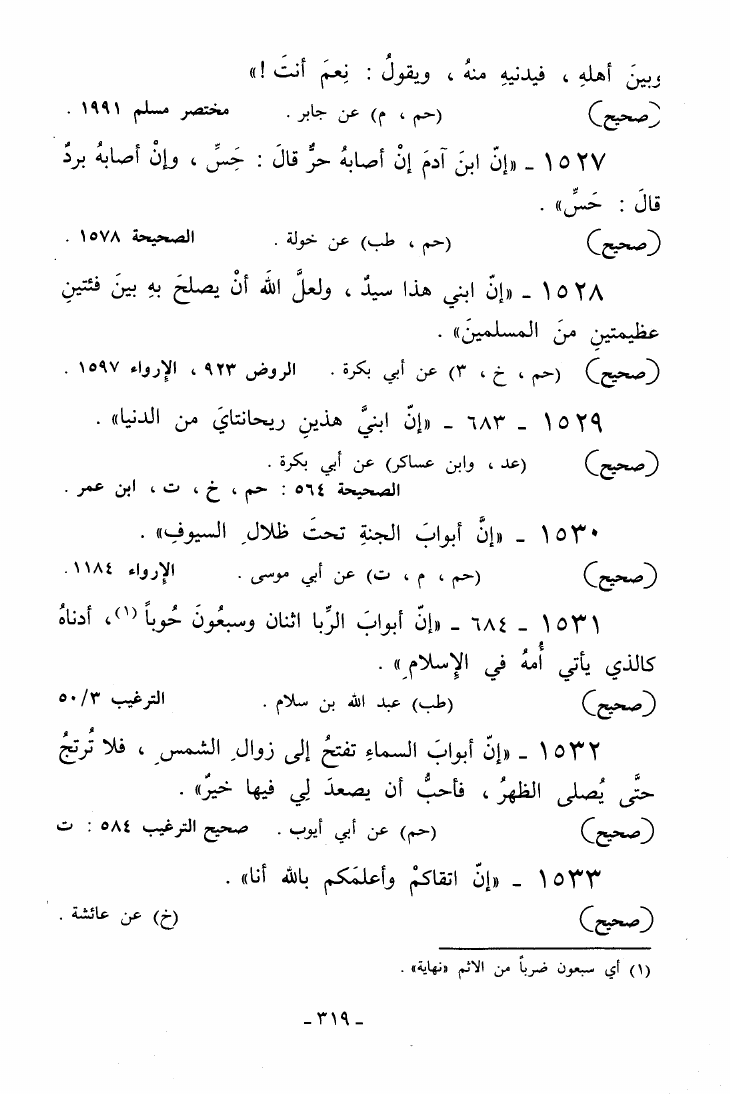 وبينَ أهلهِ ، فيدنيهِ منهُ ، ويقولُ : نِعمَ أنتَ !»
(صحيح) (حم ، م) عن جابر . مختصر مسلم ١٩٩١ .
١٥٢٧ ـ «إنّ ابنَ آدمَ إنْ أصابهُ حرٌّ قالَ : حَسِّ ، وإنْ أصابهُ بردٌ
قالَ : حَسِّ» .
(صحيح) (حم ، طب) عن خولة . الصحيحة ١٥٧٨ .
١٥٢٨ ـ «إنّ ابني هذا سيدٌ ، ولعلَّ اللهَ أنْ يصلحَ بهِ بينَ فئتينِ
عظيمتينِ منَ المسلمينَ» .
(صحيح) (حم ، خ ، ٣) عن أبي بكرة . الروض ٩٢٣ ، الإرواء ١٥٩٧ .
١٥٢٩ ـ ٦٨٣ ـ «إنّ ابنيَّ هذينِ ريحانتايَ من الدنيا» .
(صحيح) (عد ، وابن عساكر) عن أبي بكرة .
الصحيحة ٥٦٤ : حم ، خ ، ت ، ابن عمر .
١٥٣٠ ـ «إنَّ أبوابَ الجنةِ تحتَ ظلالِ السيوفِ» .
(صحيح) (حم ، م ، ت) عن أبي موسى . الإرواء ١١٨٤ .
١٥٣١ ـ ٦٨٤ ـ «إنّ أبوابَ الرِّبا اثنان وسبعُونَ حُوباً (١) ، أدناهُ
كالذي يأتي أُمهُ في الإسلامِ» .
(صحيح) (طب) عبد الله بن سلام . الترغيب ٥٠/٣
١٥٣٢ ـ «إنّ أبوابَ السماءِ تفتحُ إلى زوالِ الشمسِ ، فلا تُرتجُ
حتَّى يُصلى الظهرُ ، فأحبُّ أن يصعدَ لِي فيها خيرٌ» .
(صحيح) (حم) عن أبي أيوب . صحيح الترغيب ٥٨٤ : ت
١٥٣٣ ـ «إنّ اتقاكمْ وأعلمَكم بالله أنا» .
(صحيح) (خ) عن عائشة .
(١) أي سبعون ضرباً من الاثم «نهاية» .
ـ ٣١٩ ـ